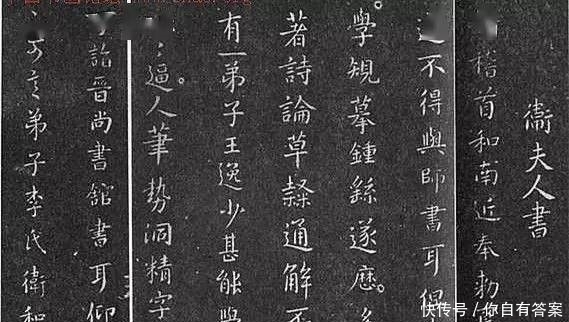 衛夫人書
稽首和南近奉勅
不得與師書耳
學規摹鍾繇遂歷
著詩論草隸通解不
有一弟子王逸少甚能學
逼人筆勢洞精字
詣晉尚書館書耳仰
弟子李氏衛和
快传号/你自有答案